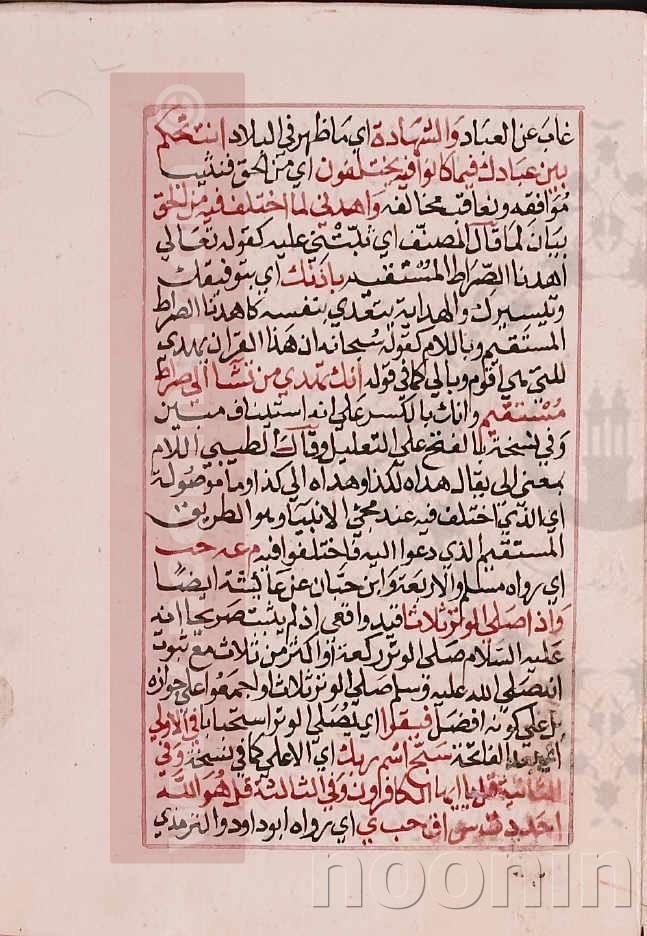 غاب عن العباد والشهادة اي ما ظهر في البلاد انت تحكم
بين عبادك فيما كانوا فيه يختلفون اي من الحق فتثيب
موافقه وتعاقب مخالفه واهدني لما اختلف فيه من الحق
بيان لما قال المصنف اي ثبتني عليه كقوله تعالي
اهدنا الصراط المستقيم باذنك اي بتوفيقك
وتيسيرك والهداية يتعدي بنفسه كاهدنا الصراط
المستقيم وباللام كقوله سبحانه ان هذا القران يهدي
للتي هي اقوم وبالي كما في قوله انك تهدي من تشا الي صراط
مستقيم وانك بالكسر علي انه استيناف مبين
وفي نسخة بالفتح علي التعليل وقال الطيبي اللام
بمعني الي يقال هداه لكذا وهداه الي كذا وما موصولة
اي الذي اختلف فيه عند مجيئ الانبيا وهو الطريق
المستقيم الذي دعوا اليه فاختلفوا فيه م عه حب
اي رواه مسلم والاربعة وابن حبان عن عايشة ايضا
واذا صلي الوتر ثلاثا قيد واقعي اذ لم يثبت صريحا انه
عليه السلام صلي الوتر ركعة او اكثر من ثلاث مع ثبوت
انه صلي الله عليه وسلم صلي الوتر ثلاث واجمعوا علي جوازه
بل علي كونه افضل فيقرا اي يصلي الوتر استحبابا في الاولي
اي بعد الفاتحة سبح اسم ربك اي الاعلي كما في نسخة وفي
الثانية قل يا ايها الكافرون وفي الثالثة قل هو الله
احد د ت س ق حب ي اي رواه ابو داود والترمذي
noonin